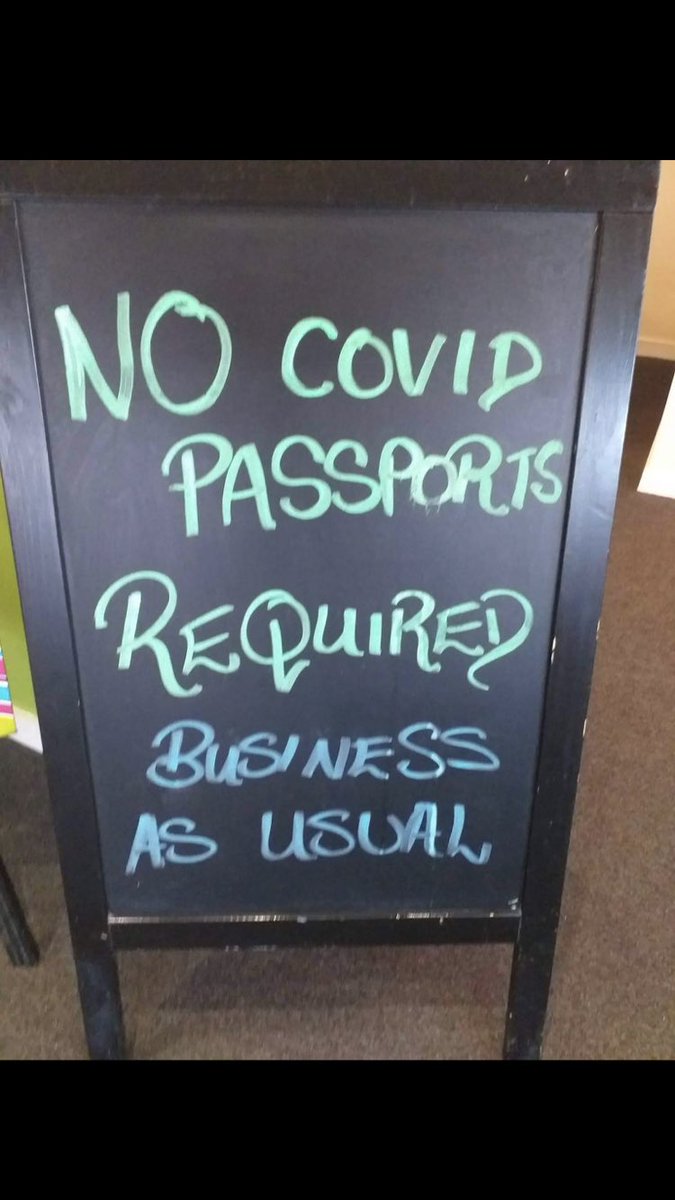 NO COVID
PASSPORTS
REQUIRED
BUSINESS
AS USUAL